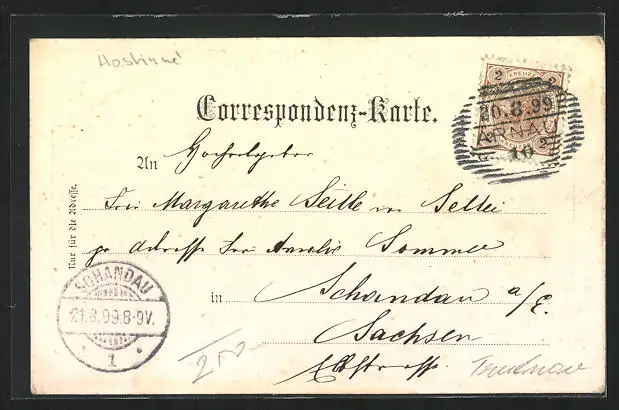 Hostinné
2 KREUZER 2
20.8.99
ARNAU
10
Correspondenz-Karte.
An Hochwolgeboren
Frau Margarethe Seidl von
per Adresse Frau Amalie Sommer
in Schandau a/E.
Sachsen
Elbstrasse
Nur für die Adresse.
SCHANDAU
21.8.99.8-9V.
1
Trutnov